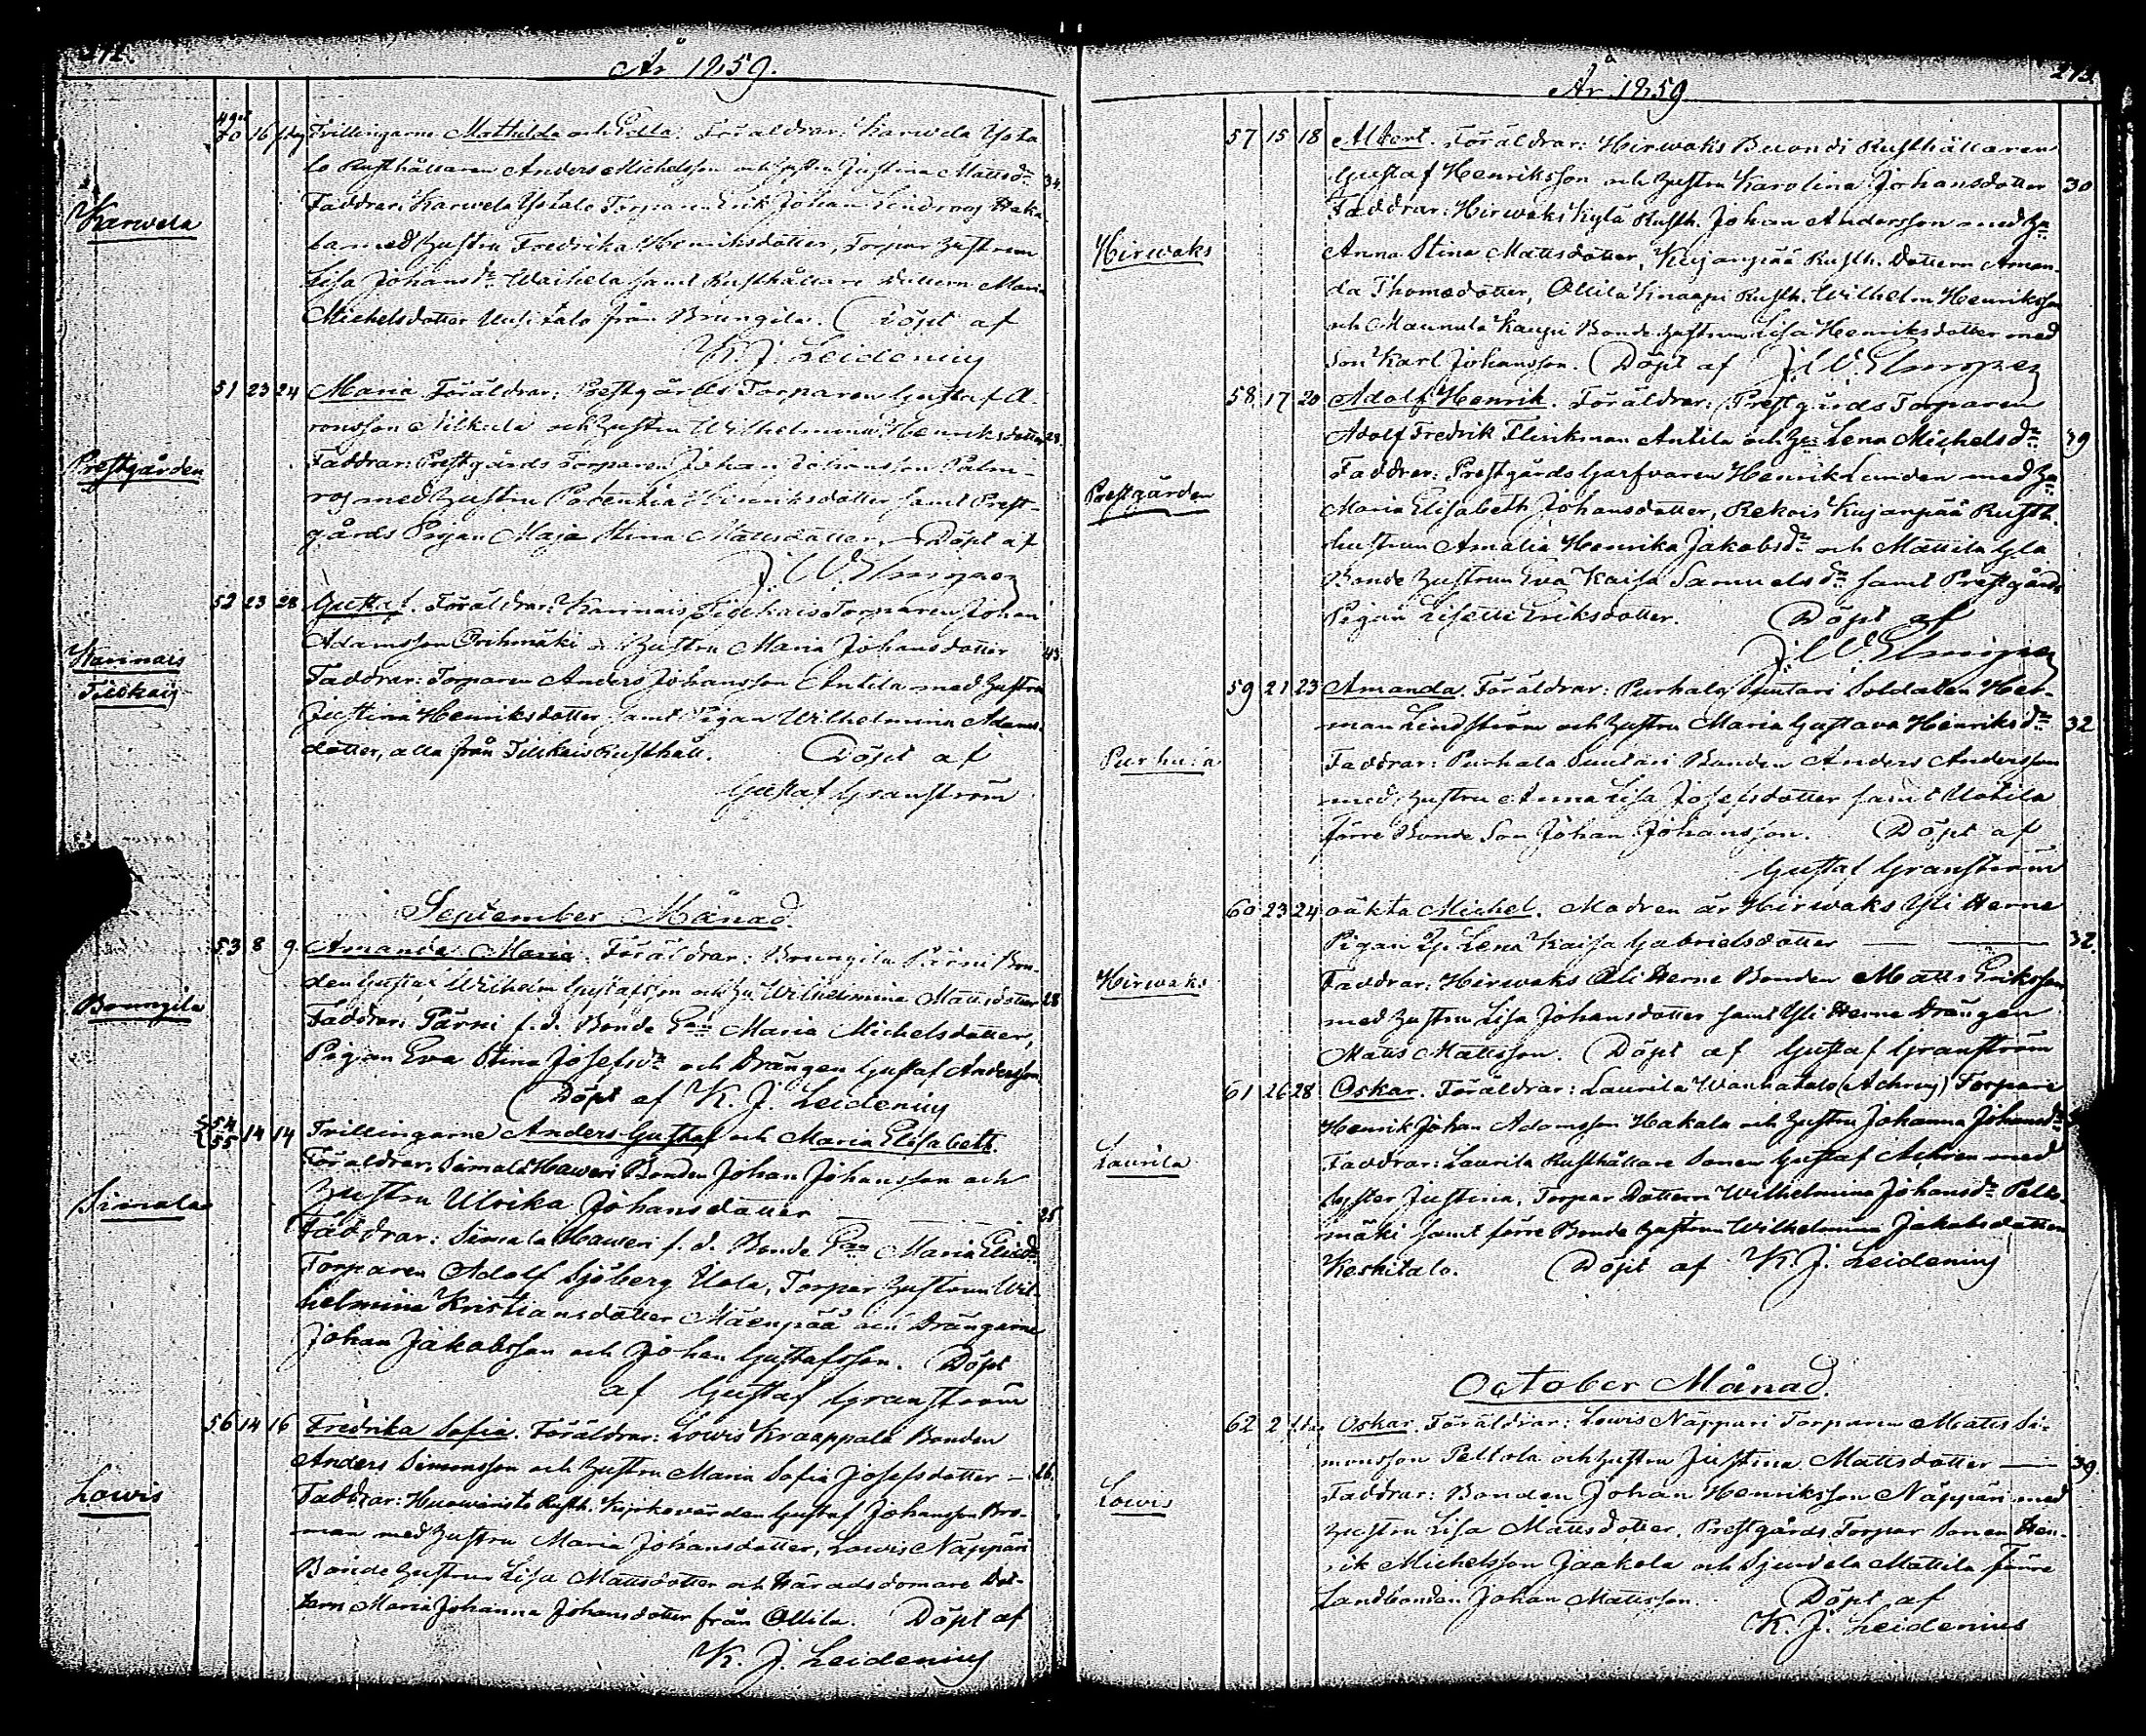 År 1859.
49 och 50 16 s. dag Trillingarne Mathilda och Edla. Föräldrar: Karwela Ysta
lo Rusthållaren Anders Michelsson och Hustru Justina Mattsdr 34.
Karwela
Faddrar: Karwela Ystalo Torparen Erik Johan Lindroos Haka
la med Hustru Fredrika Henriksdotter, Torpar Hustrun
Lisa Johansdr Waihela samt Rusthållare Dottern Maria
Michelsdotter Uusitalo från Brungila. Döpt af
K. J. Leidenius
51 23 24 Maria Föräldrar: Prestgårds Torparen Gustaf A
ronsson Nikkula och Hustru Wilhelmina Henriksdotter 28.
Prestgården
Faddrar: Prestgårds Torparen Johan Johansson Palm-
ros med Hustru Potentia Henriksdotter samt Prest-
gårds Pigan Maja Stina Mattsdotter. Döpt af
J. W. Elmgren
52 23 28 Gustaf. Föräldrar: Karinais Tiilikais Torparen Johan
Adamsson Orihmäki o. Hustru Maria Johansdotter 43
Karinais
Tiilikais
Faddrar: Torparen Anders Johansson Anttila med Hustru
Justina Henriksdotter samt Pigan Wilhelmina Adams-
dotter, alla från Tiilikais Rusthåll. Döpt af
Gustaf Granström
September Månad.
53 8 9. Amanda Maria. Föräldrar: Brungila Pärni Bon-
den Gustaf Wilhelm Gustafsson och Hu Wilhelmina Mattsdotter 28
Brungila
Faddrar: Pärni f.d. Bonde Enk Maria Michelsdotter,
Pigan Eva Stina Josefsdr och Drängen Gustaf Andersson
Döpt af K. J. Leidenius
54 55 14 14 Trillingarne Anders Gustaf och Maria Elisabeth.
Föräldrar: Simala Haweri Bonden Johan Johansson och
Simala
Hustru Ulrika Johansdotter 25
Faddrar: Simala Haweri f.d. Bonde Maria Eliedr
Torparen Adolf Sjöberg Uola, Torpar Hustrun Wil-
helmina Kristiansdotter Mäenpää och Drängarne
Johan Jakobsson och Johan Gustafsson. Döpt
af Gustaf Granström
56 14 16 Fredrika Sofia. Föräldrar: Lowis Kraappala Bonden
Anders Simonsson och Hustru Maria Sofia Josefsdotter 26.
Lowis
Faddrar: Huowäristo Rusth. Kyrkovärden Gustaf Johansson Bro-
man med Hustru Maria Johansdotter, Lowis Näppäri
Bonde Hustrun Lisa Mattsdotter och Häradsdomare Dot-
tern Maria Johanna Johansdotter från Ollila. Döpt af
K. J. Leidenius
273.
År 1859
57 15 18 Albert. Föräldrar: Hirwaks Buondi Rusthållaren
Gustaf Henriksson och Hustru Karolina Johansdotter 30
Hirwaks
Faddrar: Hirwaks Kylä Rusth. Johan Andersson med Hu
Anna Stina Mattsdotter, Kujanpää Rusth. Dottern Aman-
da Thomasdotter, Ollila Knaapi Rusth. Wilhelm Henriksson
och Maunula Kauppi Bonde Hustrun Lisa Henriksdotter med
Son Karl Johansson. Döpt af J. W. Elmgren
58 17 20 Adolf Henrik. Föräldrar: Prestgårds Torparen
Adolf Fredrik Flinkman Antila och Hu Lena Michelsdr 39
Prestgården
Faddrar: Prestgårds Garfvaren Henrik Lunden med Hu
Maria Elisabeth Johansdotter, Rekois Kujanpää Rusth.
hustrun Amalia Henrika Jakobsdr och Mattila Yla
Bonde Hustrun Eva Kaisa Samuelsdr samt Prestgårds
Pigan Lisette Eriksdotter. Döpt af
J. W. Elmgren
59 21 23 Amanda. Föräldrar: Purhala Suutari Soldaten Her-
man Lindström och Hustru Maria Gustava Henriksdr 32
Purhala
Faddrar: Purhala Suutari Bonden Anders Andersson
med Hustru Anna Lisa Josefsdotter samt Uotila
förre Bonde Son Johan Johansson. Döpt af
Gustaf Granström
60 23 24 oäkta Michel. Modren är Hirwaks Yli Herne
Pigan Lena Kaisa Gabrielsdotter 32.
Hirwaks
Faddrar: Hirwaks Ali Herne Bonden Matts Eriksson
med Hustru Lisa Johansdotter samt Yli Herne Drängen
Matts Mattsson. Döpt af Gustaf Granström
61 26 28 Oskar. Föräldrar: Laurila Wanhatalo (Achrén) Torpare
Henrik Johan Adamsson Hakala och Hustru Johanna Johansdr
Laurila
Faddrar: Laurila Rusthållare Sonen Gustaf Achren med
Syster Justina, Torpar Dottern Wilhelmina Johansdr Pelto-
mäki samt förre Bonde Hustrun Wilhelmina Jakobsdotter
Keskitalo. Döpt af K. J. Leidenius
October Månad.
62 2 s. dag Oskar. Föräldrar: Lowis Näppäri Torparen Matts Si-
monsson Peltola och Hustru Justina Mattsdotter 39
Lowis
Faddrar: Bonden Johan Henriksson Näppäri med
Hustru Lisa Mattsdotter, Prestgårds Torpar Sonen Hen-
rik Michelsson Jaakola och Sjundela Mattila förre
Landbonden Johan Mattsson. Döpt af
K. J. Leidenius